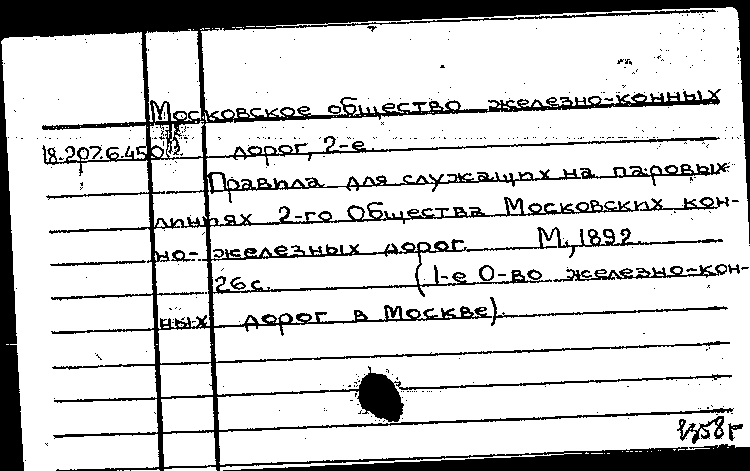 Московское общество железно-конных
18.207.6.450 дорог, 2-е.
Правила для служащих на паровых
линиях 2-го Общества Московских кон-
но-железных дорог. М., 1892.
26 с. (1-е О-во железно-кон-
ных дорог в Москве).